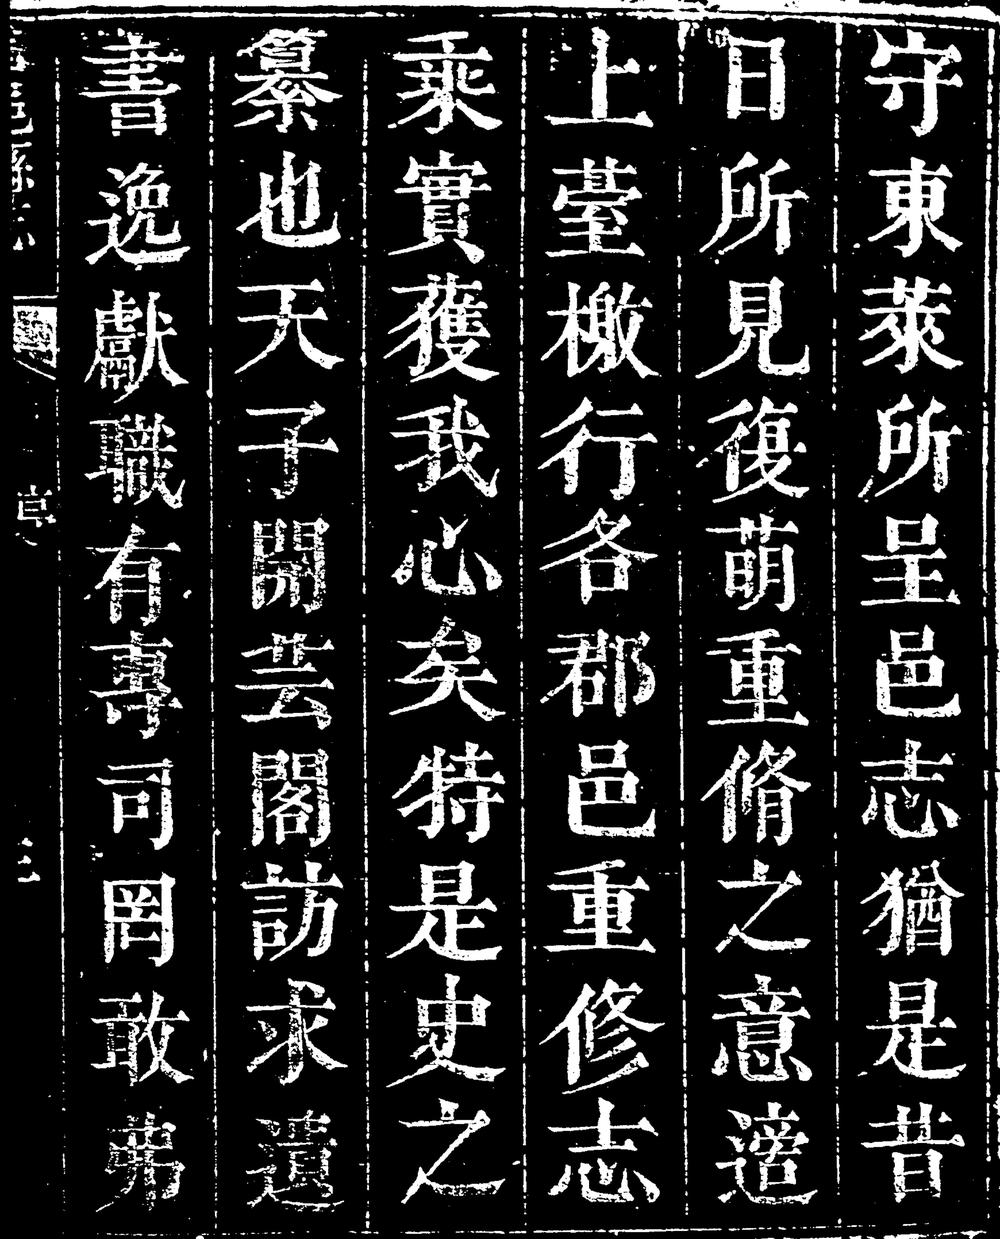 守東萊所呈邑志猶是昔
日所見復萌重脩之意適
上臺檄行各郡邑重修志
乘實獲我心矣特是史之
纂也天子開芸閣訪求遺
書逸獻職有專司罔敢弗